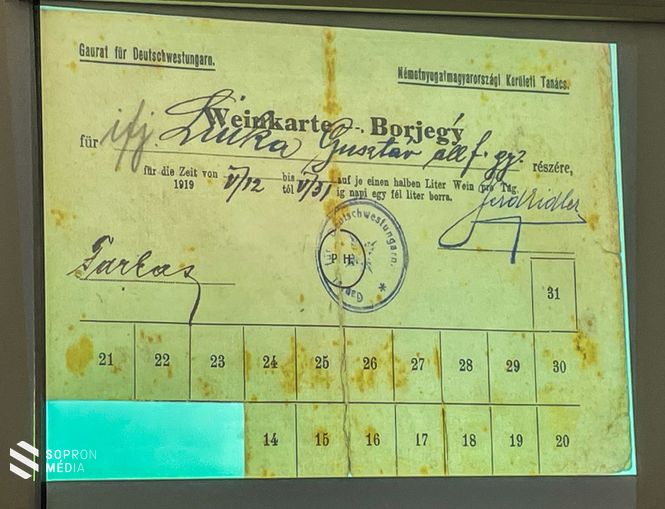 Gaurat für Deutschwestungarn.
Németnyugatmagyarországi Kerületi Tanács.
Weinkarte - Borjegý
für ifj. Gusztáv áll. f. gy. részére,
für die Zeit von V/12 bis V/31 auf je einen halben Liter Wein pro Tag.
1919 tól ig napi egy fél liter borra.
Farkas
Gaurat für Deutschwestungarn.
P. H.
31
21 22 23 24 25 26 27 28 29 30
14 15 16 17 18 19 20
SOPRON
MÉDIA